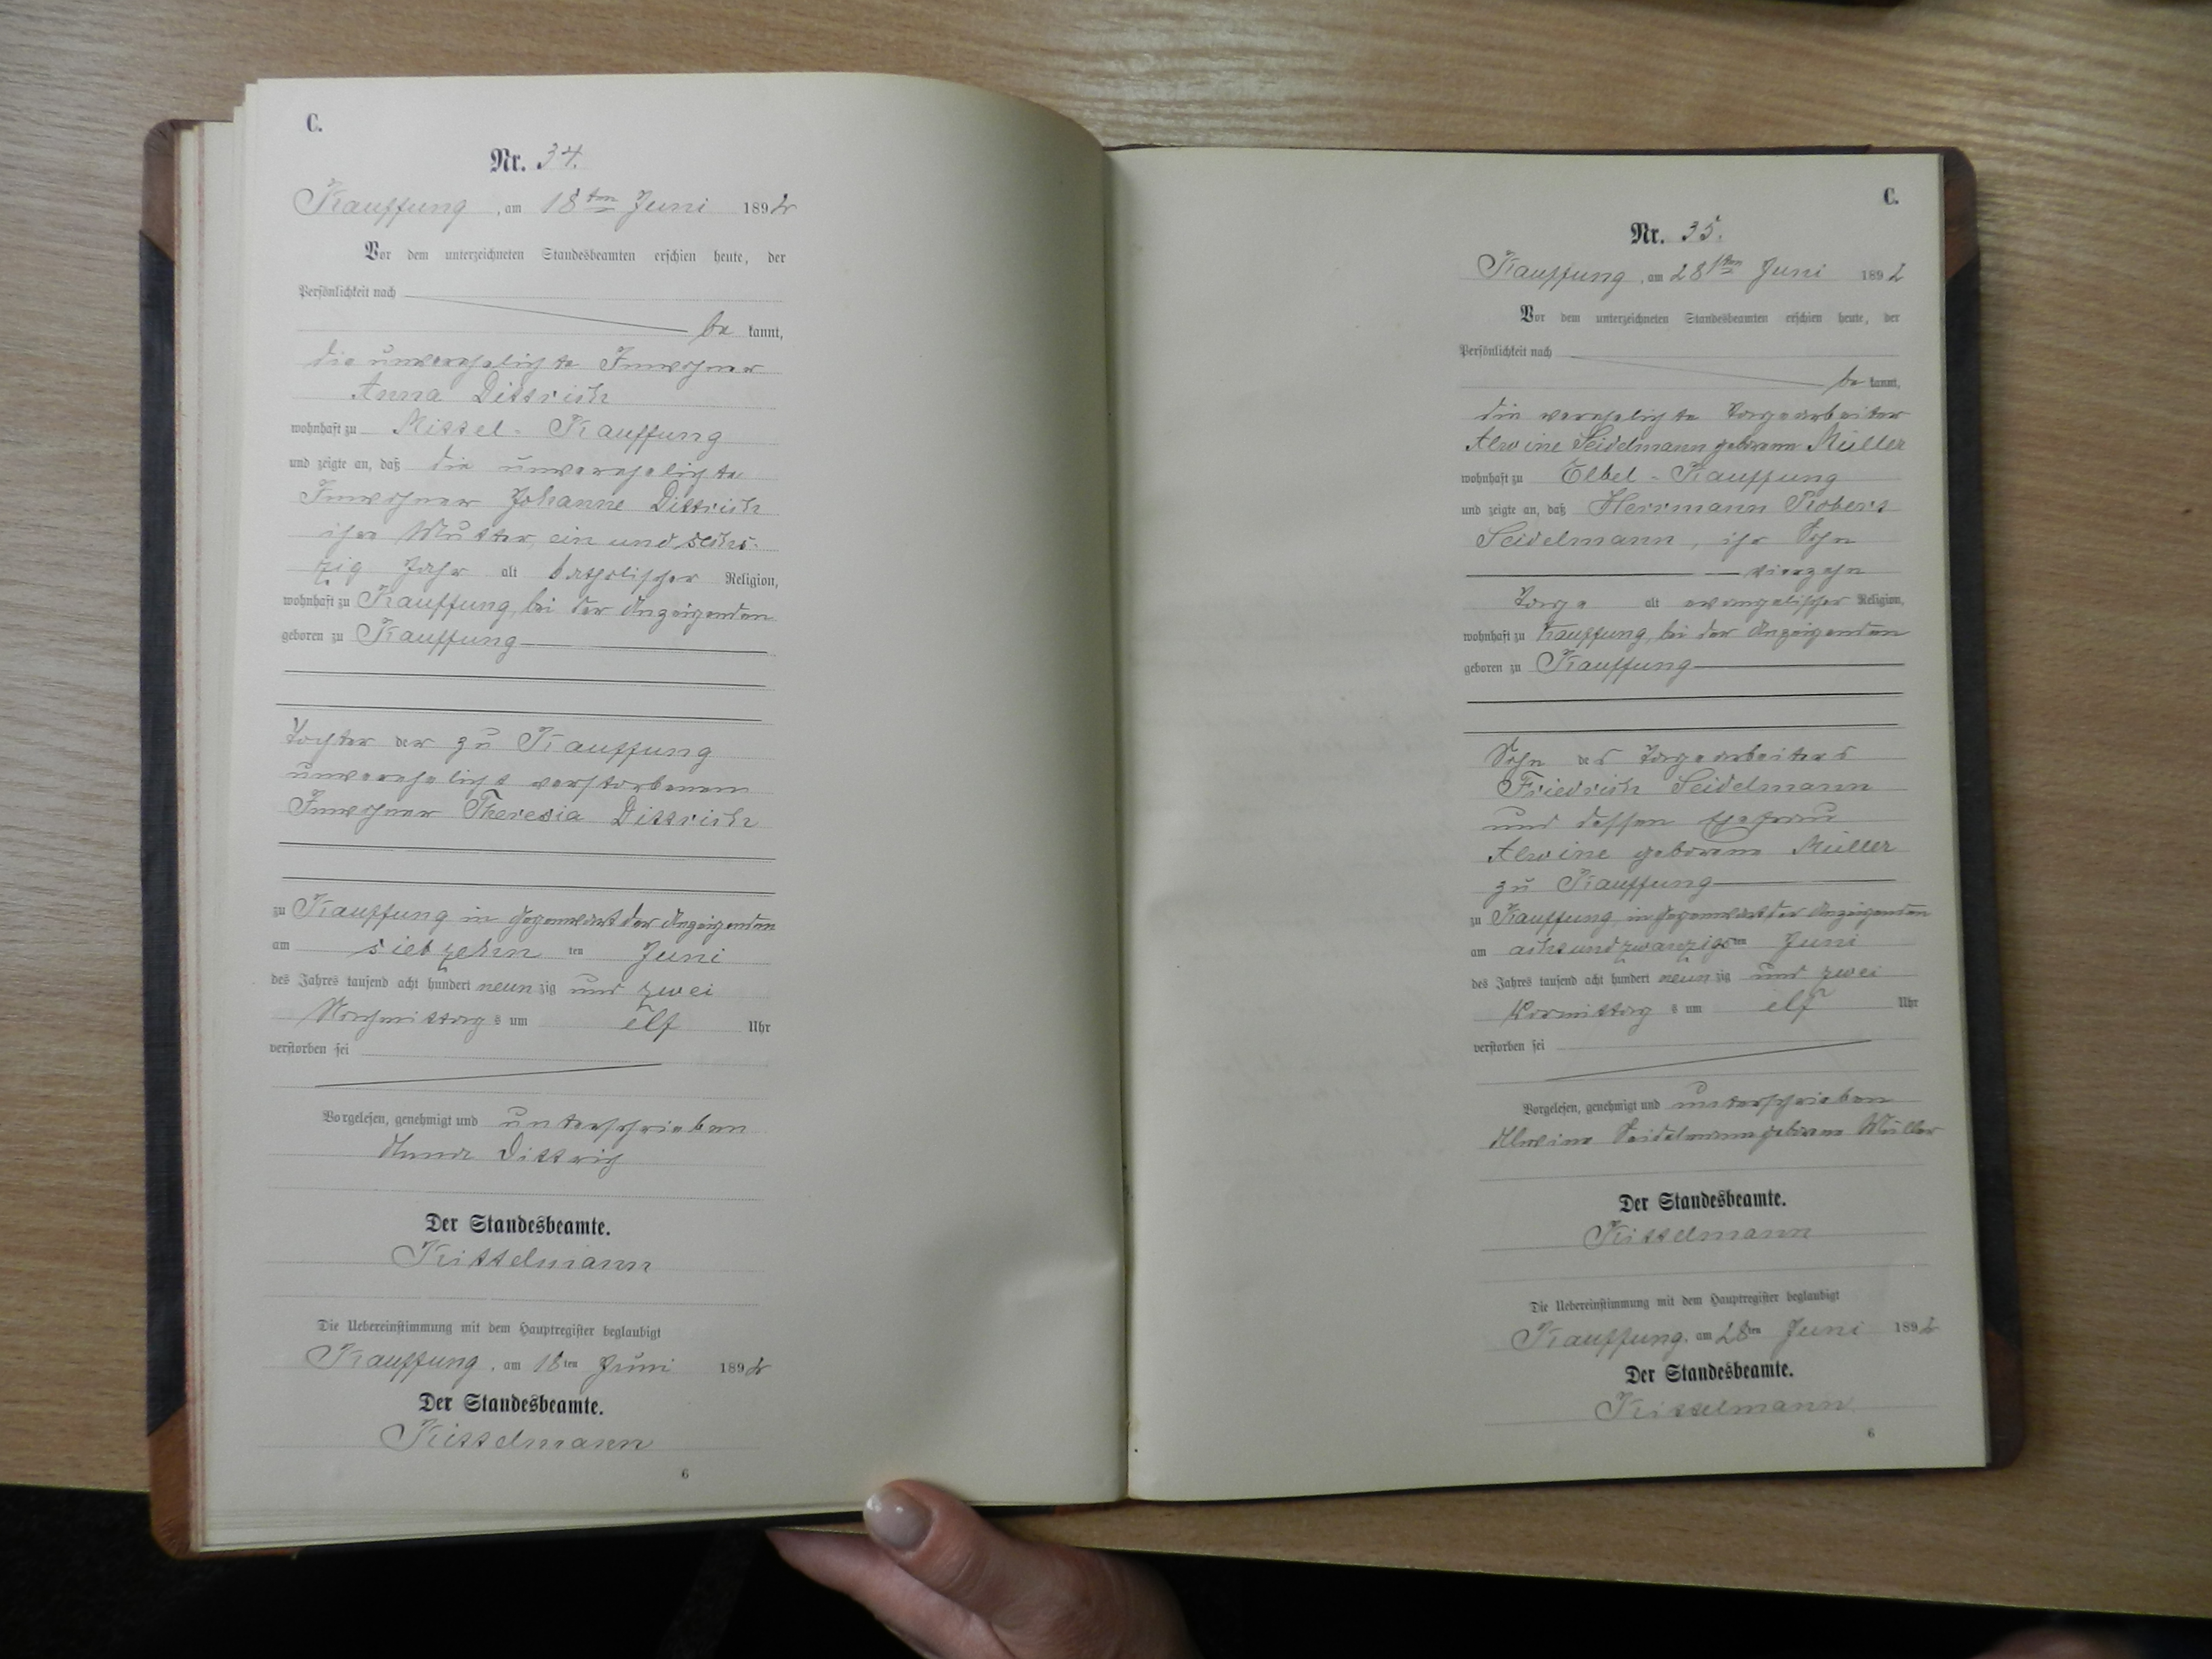 C.
Nr. 34.
Kauffung, am 18ten Juni 1892
Vor dem unterzeichneten Standesbeamten erschien heute, der
Persönlichkeit nach
be kannt,
die unverehelichte Inwohner
Anna Dittrich
wohnhaft zu Mittel-Kauffung
und zeigte an, daß die unverehelichte
Inwohner Johanne Dittrich
ihre Mutter, ein und sechs-
zig Jahr alt katholischer Religion,
wohnhaft zu Kauffung, bei der Anzeigenden
geboren zu Kauffung
Tochter der zu Kauffung
unverehelicht verstorbenen
Inwohner Theresia Dittrich
zu Kauffung in Gegenwart der Anzeigenden
am siebzehn ten Juni
des Jahres tausend acht hundert neun zig und zwei
Nachmittag s um elf Uhr
verstorben sei
Vorgelesen, genehmigt und unterschrieben
Anna Dittrich
Der Standesbeamte.
Kittelmann
Die Uebereinstimmung mit dem Hauptregister beglaubigt
Kauffung, am 18ten Juni 1892
Der Standesbeamte.
Kittelmann
6
C.
Nr. 35.
Kauffung, am 28ten Juni 1892
Vor dem unterzeichneten Standesbeamten erschien heute, der
Persönlichkeit nach
be kannt,
die verehelichte Tagearbeiter
Alwine Seidelmann geborene Müller
wohnhaft zu Elbel-Kauffung
und zeigte an, daß Herrmann Robert
Seidelmann, ihr Sohn
vierzehn
Tage alt evangelischer Religion,
wohnhaft zu Kauffung, bei der Anzeigenden
geboren zu Kauffung
Sohn des Tagearbeiters
Friedrich Seidelmann
und dessen Ehefrau
Alwine geborene Müller
zu Kauffung
zu Kauffung in Gegenwart der Anzeigenden
am achtundzwanzigsten Juni
des Jahres tausend acht hundert neun zig und zwei
Vormittag s um elf Uhr
verstorben sei
Vorgelesen, genehmigt und unterschrieben
Alwine Seidelmann geborene Müller
Der Standesbeamte.
Kittelmann
Die Uebereinstimmung mit dem Hauptregister beglaubigt
Kauffung, am 28ten Juni 1892
Der Standesbeamte.
Kittelmann
6